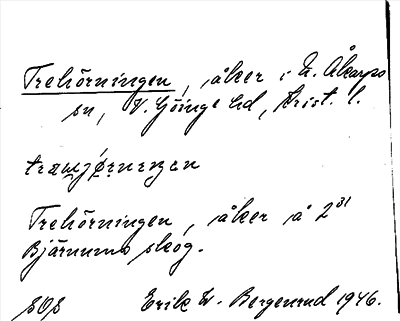 Trehörningen, åker i N. Åkarps
sn, V. Göinge hd, Krist. l.
Trehörningen, åker å 2
Bjärnums skog.
SOS Erik W. Bergenrud 1946.